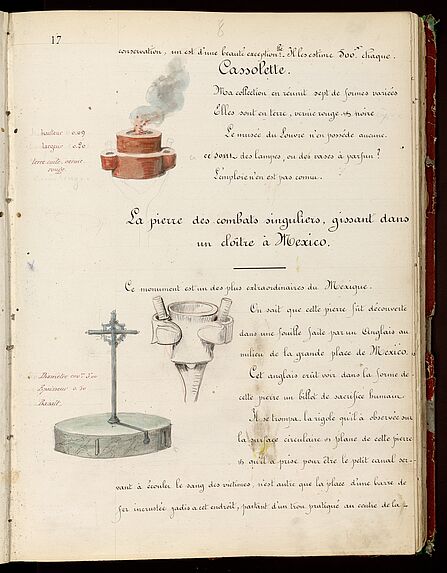 17
conservation, un est d'une beauté exception.lle Il les estime 300fr chaque.
Cassolette.
Ma collection en réunit sept de formes variées
Elles sont en terre, vernie rouge et noire
hauteur 0.09
Le musée du Louvre n'en possède aucune.
largeur 0.20
ce sont des lampes, ou des vases à parfum?
terre cuite, vernie
rouge.
L'emploi n'en est pas connu.
La pierre des combats singuliers, gisant dans
un cloître à Mexico.
Ce monument est un des plus extraordinaires du Mexique.
On sait que cette pierre fût découverte
dans une fouille faite par un Anglais au
milieu de la grande place de Mexico.
Cet anglais crût voir dans la forme de
cette pierre un billot de sacrifice humain.
Diamètre
Epaisseur
Basalt.
Il se trompa, la rigole qu'il a observée sur
la surface circulaire et plane de cette pierre
et qu'il a prise pour être le petit canal ser-
vant à écouler le sang des victimes, n'est autre que la place d'une barre de
fer incrustée jadis a cet endroit, partant d'un trou pratiqué au centre de la